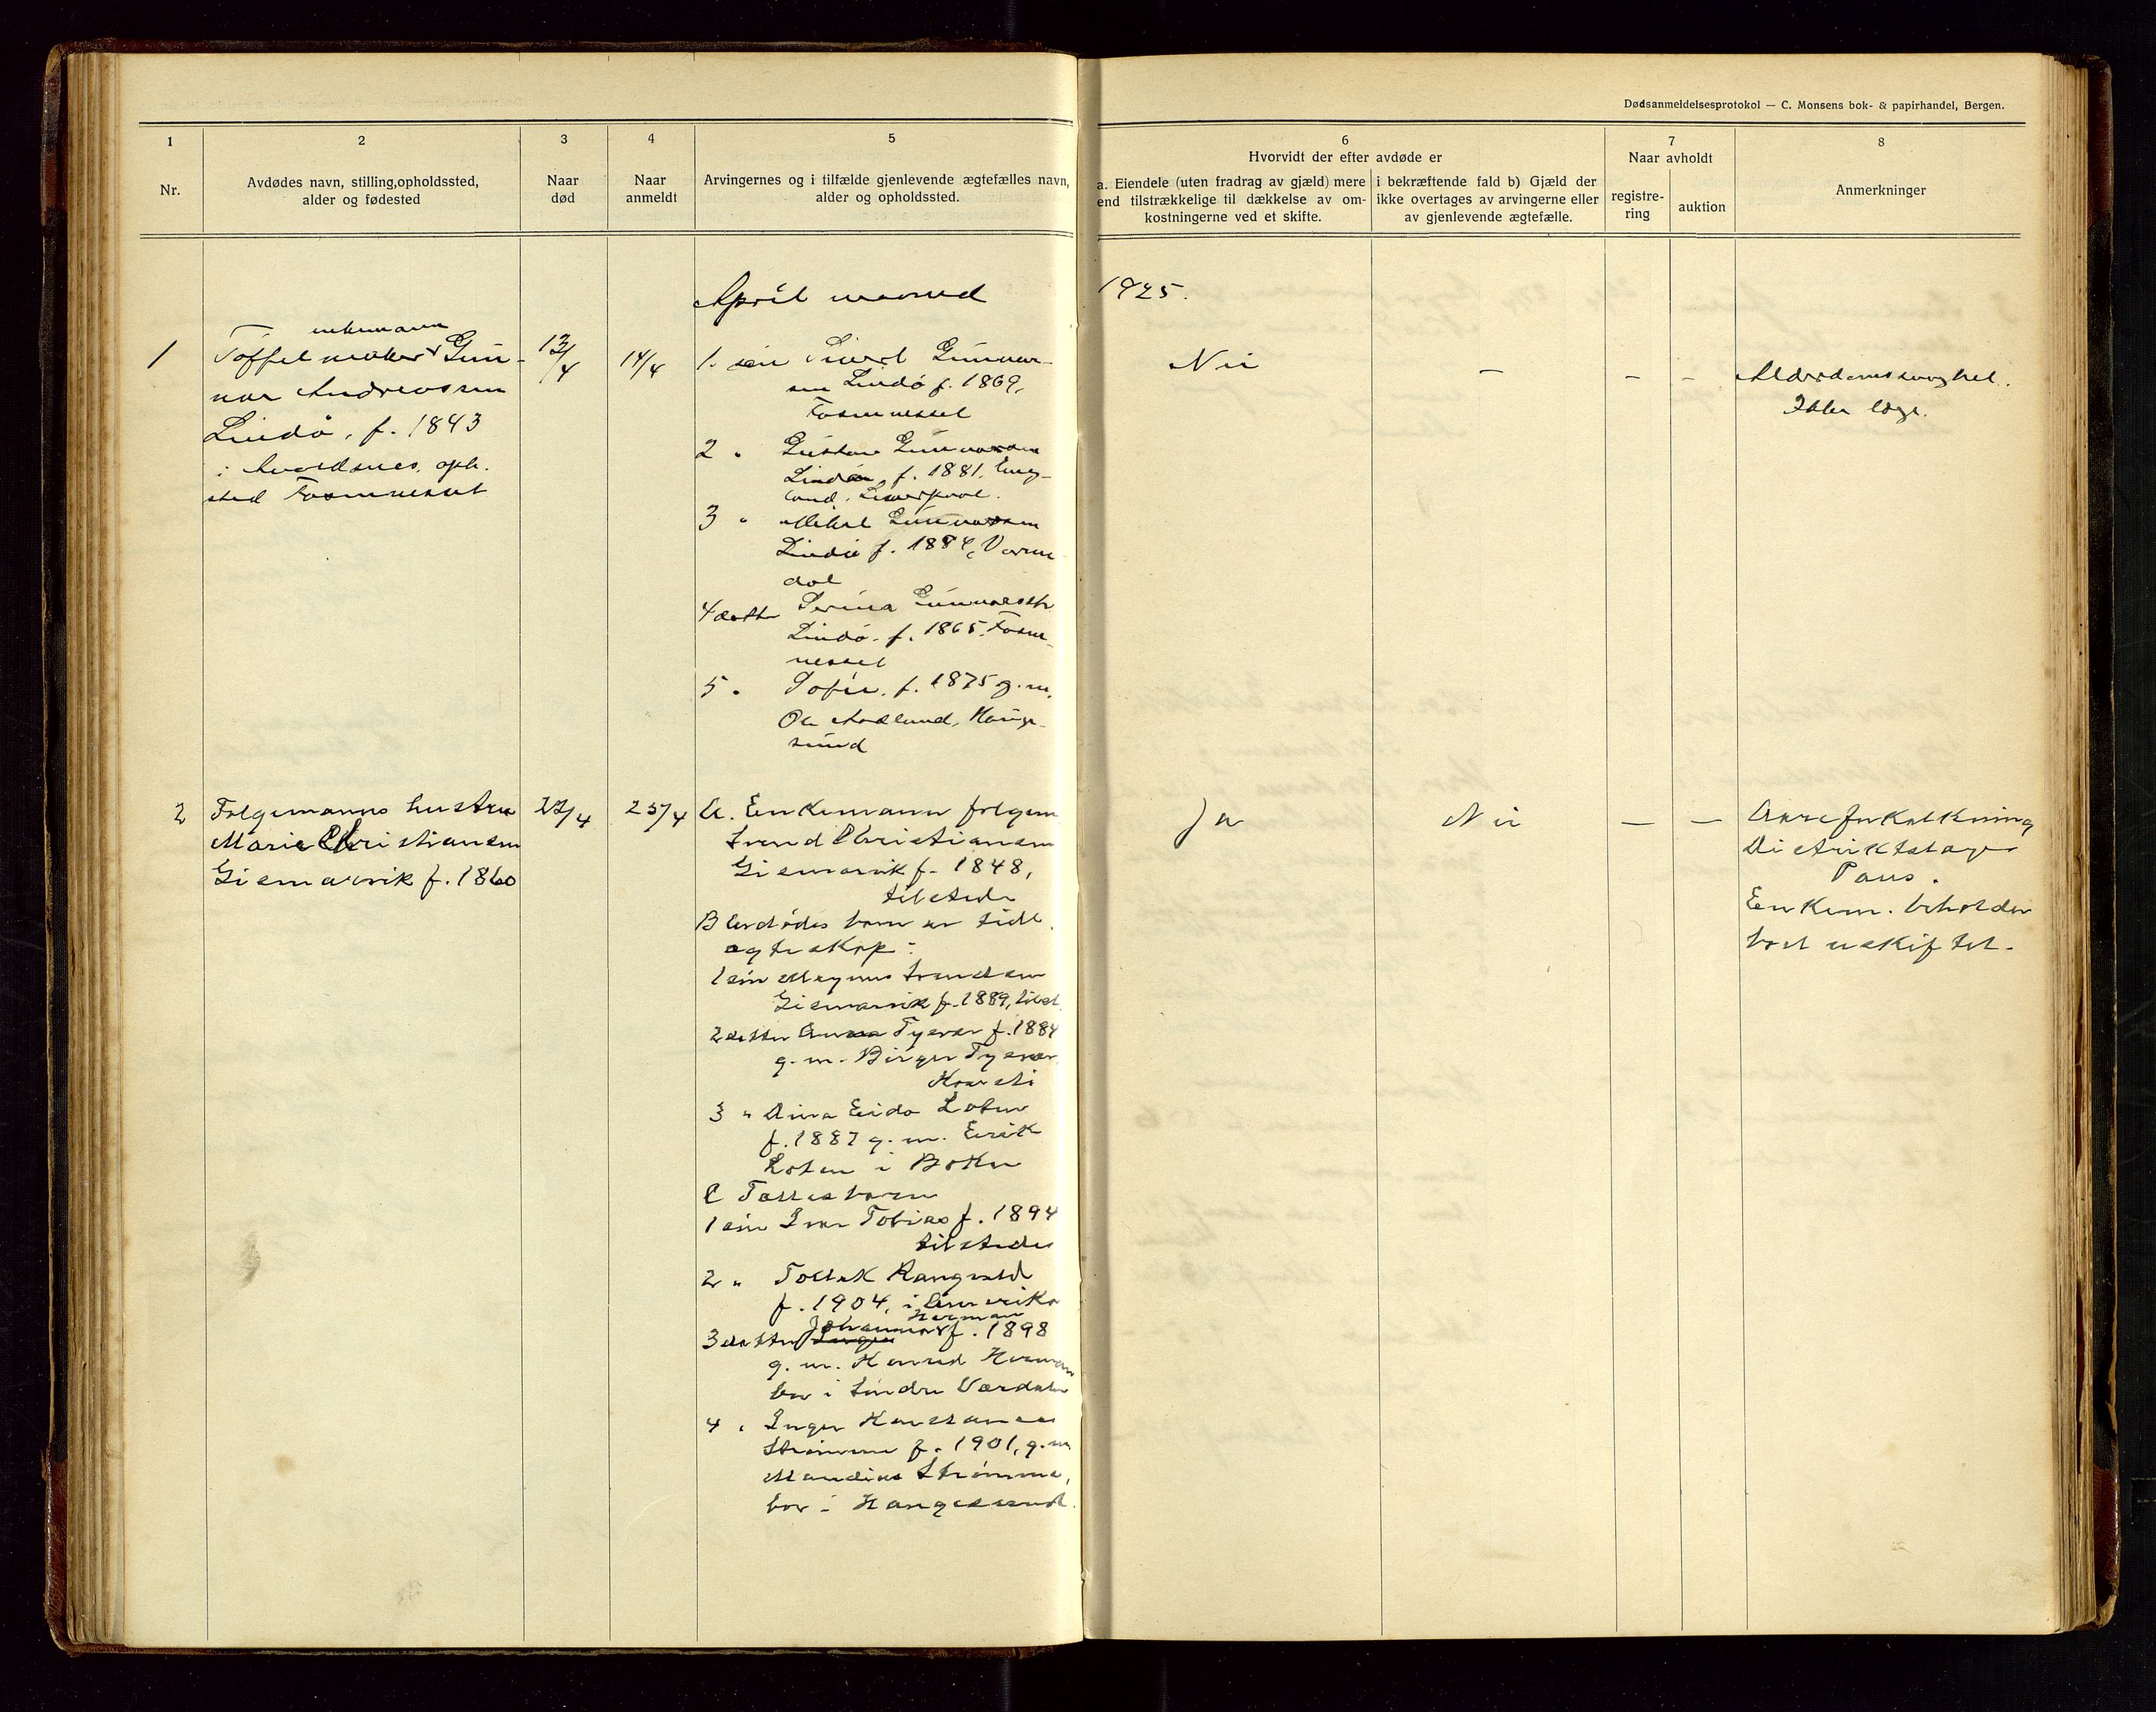 Dødsanmeldelsesprotokol — C. Monsens bok- & papirhandel, Bergen.
1
Nr.
2
Avdødes navn, stilling, opholdssted,
alder og fødested
3
Naar
død
4
Naar
anmeldt
5
Arvingernes og i tilfælde gjenlevende ægtefælles navn,
alder og opholdssted.
6
Hvorvidt der efter avdøde er
a. Eiendele (uten fradrag av gjæld) mere
end tilstrækkelige til dækkelse av om-
kostningerne ved et skifte.
i bekræftende fald b) Gjæld der
ikke overtages av arvingerne eller
av gjenlevende ægtefælle.
7
Naar avholdt
registre-
ring
auktion
8
Anmerkninger
April maaned 1925.
1
enkemann
Tøffelmaker Gun-
nar Andreassen
Lindø, f. 1843
i Avaldsnes, oph.
sted Fosenneset
13/4
14/4
1. søn Sivert Gunnar-
sen Lindø f. 1869,
Fosenneset
2 " Gustav Gunnarsen
Lindøe, f. 1881, Eng-
land, Liverpool.
3 " Mikal Gunnarsen
Lindø f. 1884, Vorme-
dal
4 datter Serina Gunnarsdtr
Lindø. f. 1865. Fosen-
neset
5 " Sofie. f. 1875 g. m.
Ole Aadland, Hauge-
sund
Nei
—
—
—
Alderdomssvaghet.
Ikke læge.
2
Folgemanns hustru
Marie Christiansen
Giemarvik f. 1860
22/4
25/4
A. Enkemann folgem
Svend Christiansen
Giemarvik f. 1848,
tilstede
B Avdødes barn av tidl.
ægteskap:
1 søn Magnus Svendsen
Giemarvik f. 1889, tilst.
2 datter Anna Tysvær f. 1884
g. m. Birger Tysvær
3 " Dina Eida Loten
f. 1887 g. m. Eirik
Loten i Bokn
C Fællesbarn
1 søn Ivar Tobias f. 1894
tilstede
2 " Tollak Rangvald
f. 1904, i Amerika
Herman
3 datter Johanna f. 1898
g. m. Konrad Herman
bor i Søndre Vardalen
4 " Inger Konstanse
Strømme f. 1901, g. m.
Mandius Strømme,
bor i Haugesund.
Ja
Nei
—
—
Aareforkalkning
Distriktslæge
Paus.
Enkem. beholder
boet uskiftet.